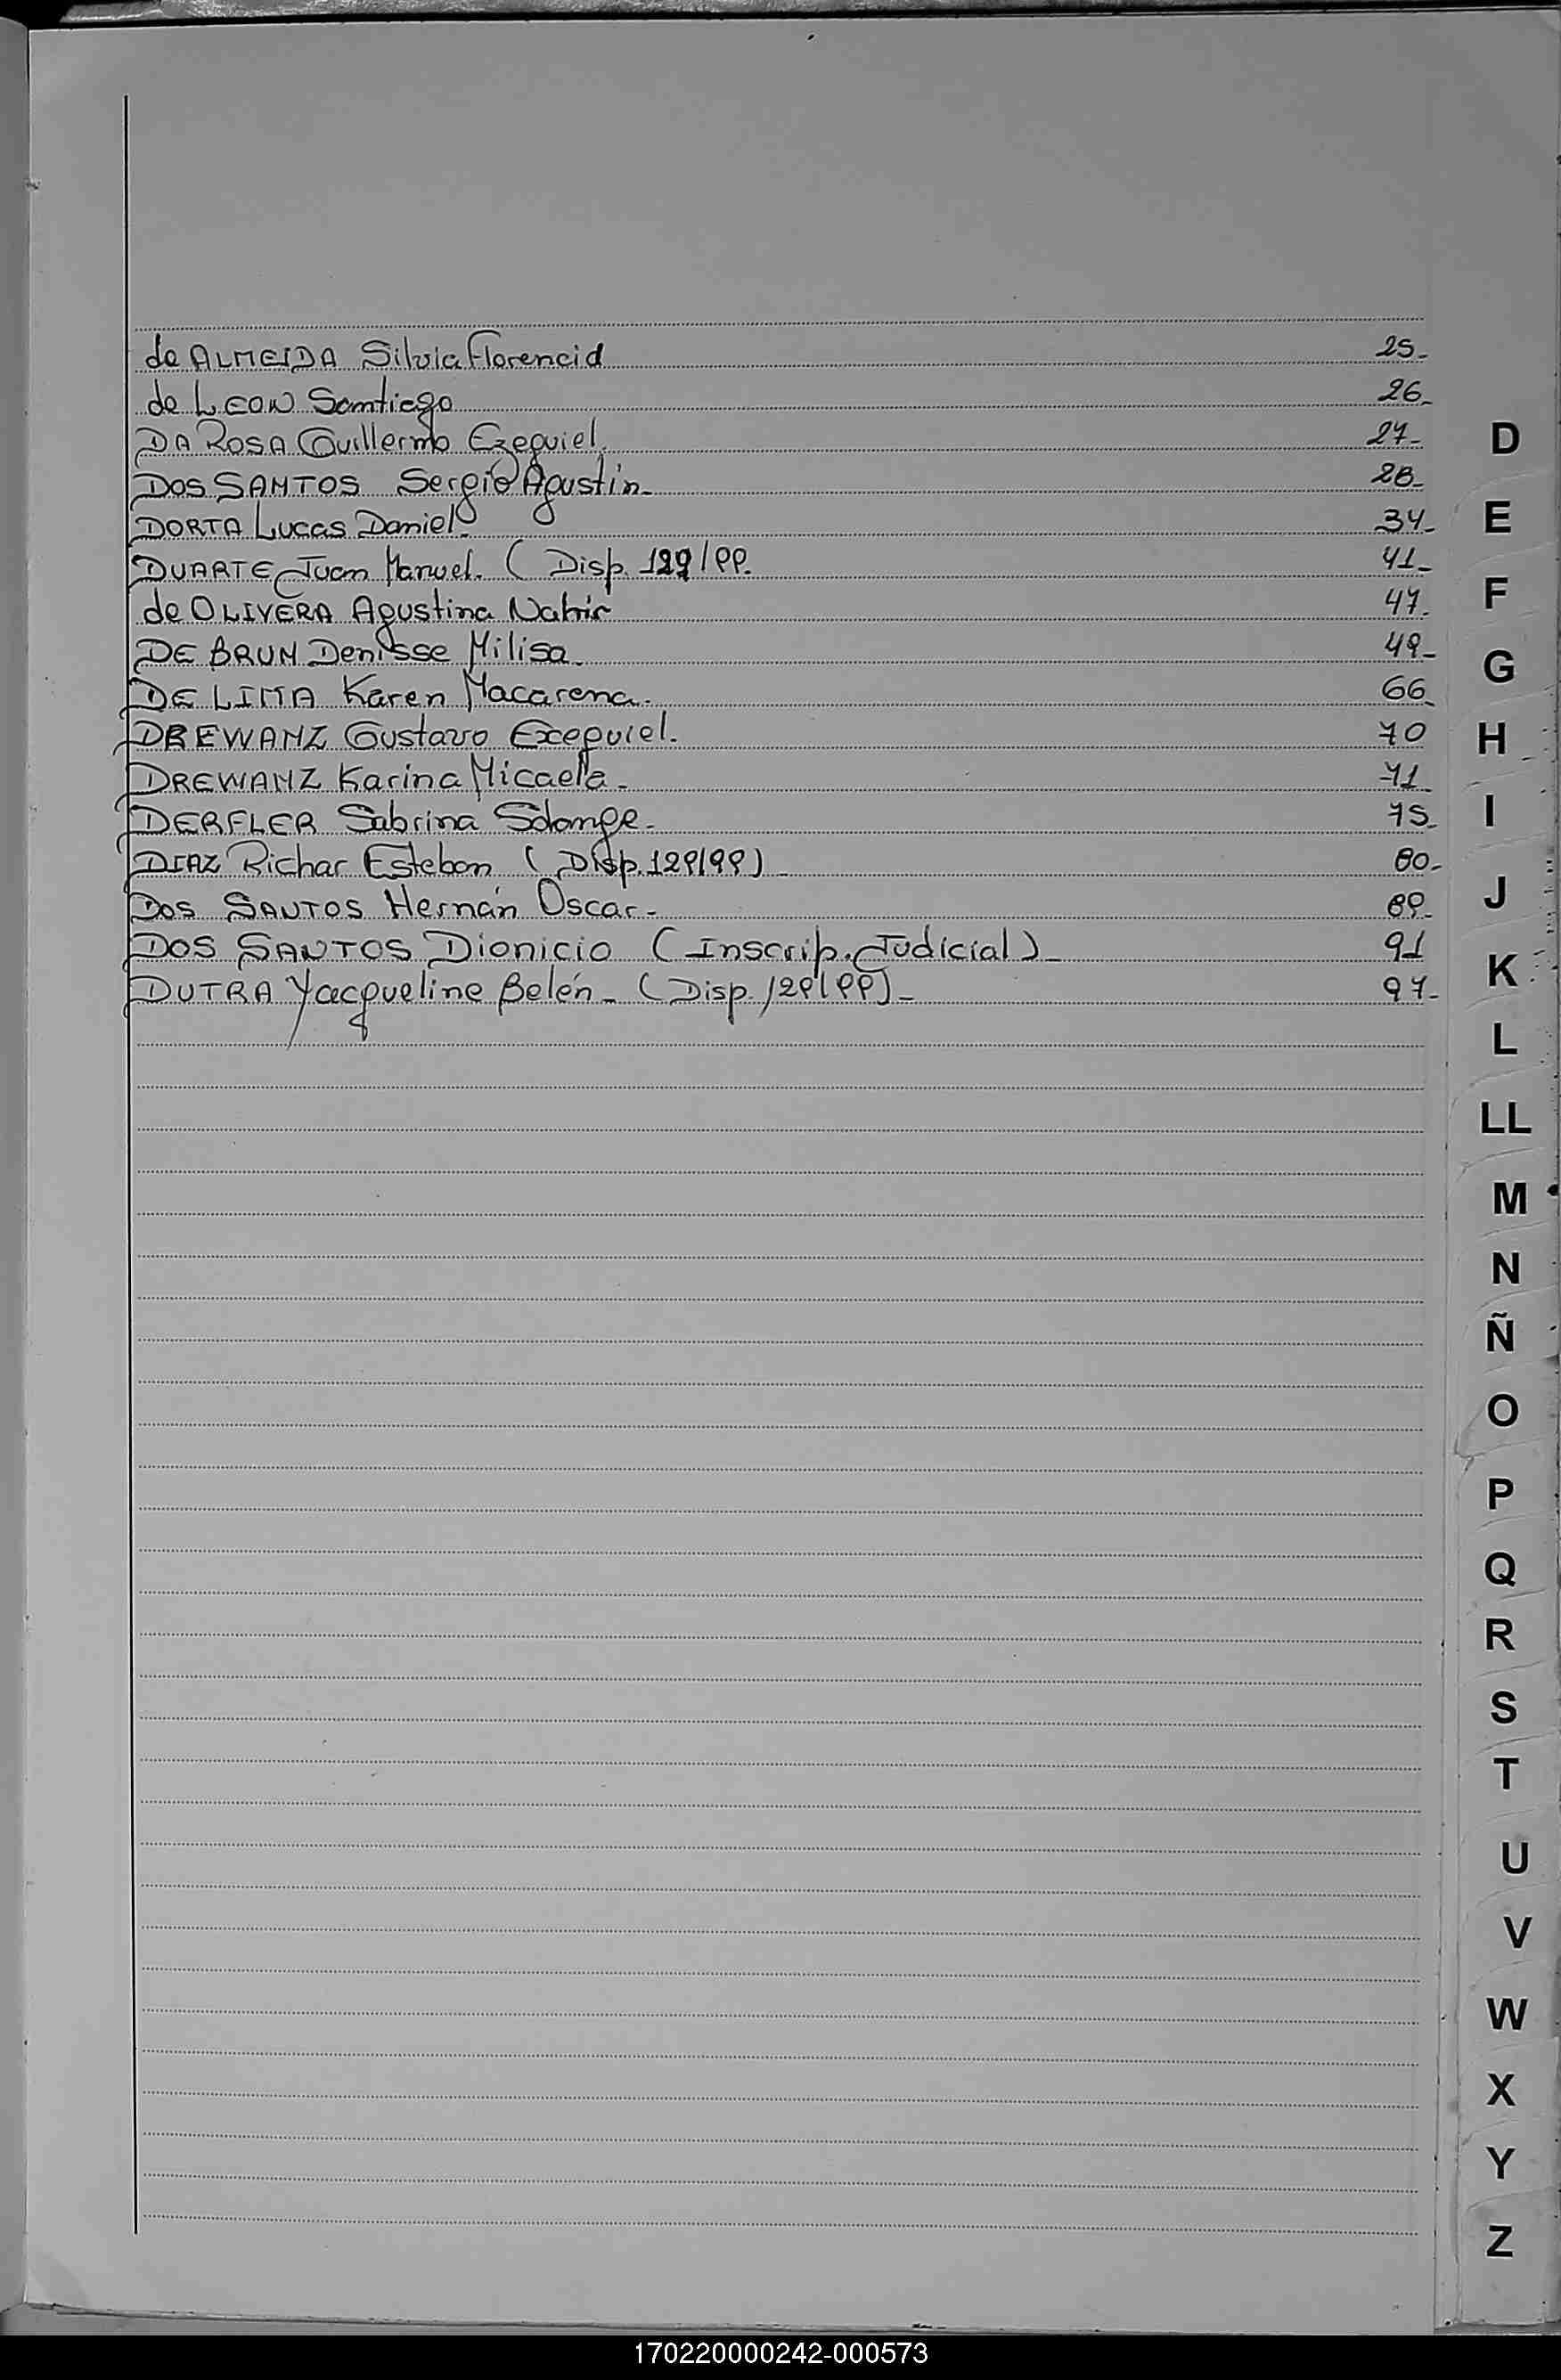 de ALMEIDA Silvia Florencia 25-
de LEON Santiago 26-
DA ROSA Guillermo Ezequiel. 27-
DOS SANTOS Sergio Agustin- 28-
DORTA Lucas Daniel- 34-
DUARTE Juan Manuel. ( Disp. 129/99. 41-
de OLIVERA Agustina Nahir 47.
DE BRUN Denisse Milisa. 49-
DE LIMA Karen Macarena. 66
DREWANZ Gustavo Exequiel. 70
DREWANZ Karina Micaela- 71
DERFLER Sabrina Solange- 75-
DIAZ Richar Esteban (Disp.129/99) - 80-
DOS SANTOS Hernán Oscar- 89-
DOS SANTOS Dionicio (Inscrip. Judicial)- 91
DUTRA Yacqueline Belén- (Disp. 129/99)- 97-
D
E
F
G
H
I
J
K
L
LL
M
N
Ñ
O
P
Q
R
S
T
U
V
W
X
Y
Z
170220000242-000573